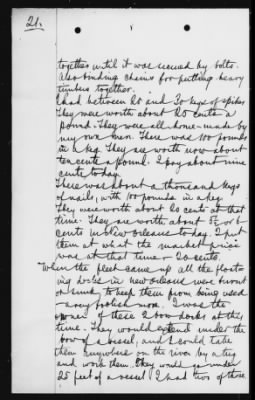 21.
together until it was secured by bolts.
Also binding chains for putting heavy
timbers together.
I had between 20 and 30 kegs of spikes
They were worth about 20 cents a
pound. They were all home-made by
my own men. There was 100 pounds
in a keg. They are worth now about
ten cents a pound. I pay about nine
cents today.
There was about a thousand kegs
of nails, with 100 pounds in a keg.
They were worth about 20 cents at that
time. They are worth about 5 or 6
cents in New Orleans today. I put
them at what the market price
was at that time - 20 cents.
When the fleet came up all the float-
ing docks in New Orleans were burnt
or sunk to keep them from being used
- a very foolish move. I was the
owner of these 2 box docks at this
time. They would extend under the
bow of a vessel, and I could take
them anywhere on the river by a tug
and work them. They would go under
25 feet of a vessel. I had two of those